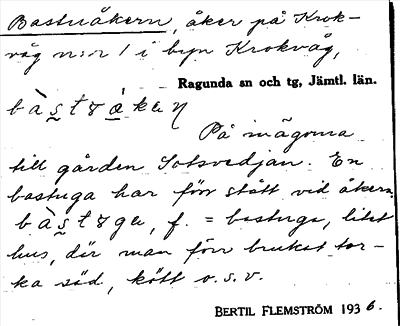 Bastuåkern, åker på Krok-
våg n:r 1 i byn Krokvåg,
Ragunda sn och tg, Jämtl. län.
bàstɷåkeɳ
På inägorna
till gården Sotsvedjan. En
bastuga har förr stått vid åkern.
bàstɷga, f. = bastuga, litet
hus, där man förr brukat tor-
ka säd, kött o.s.v.
BERTIL FLEMSTRÖM 1936.